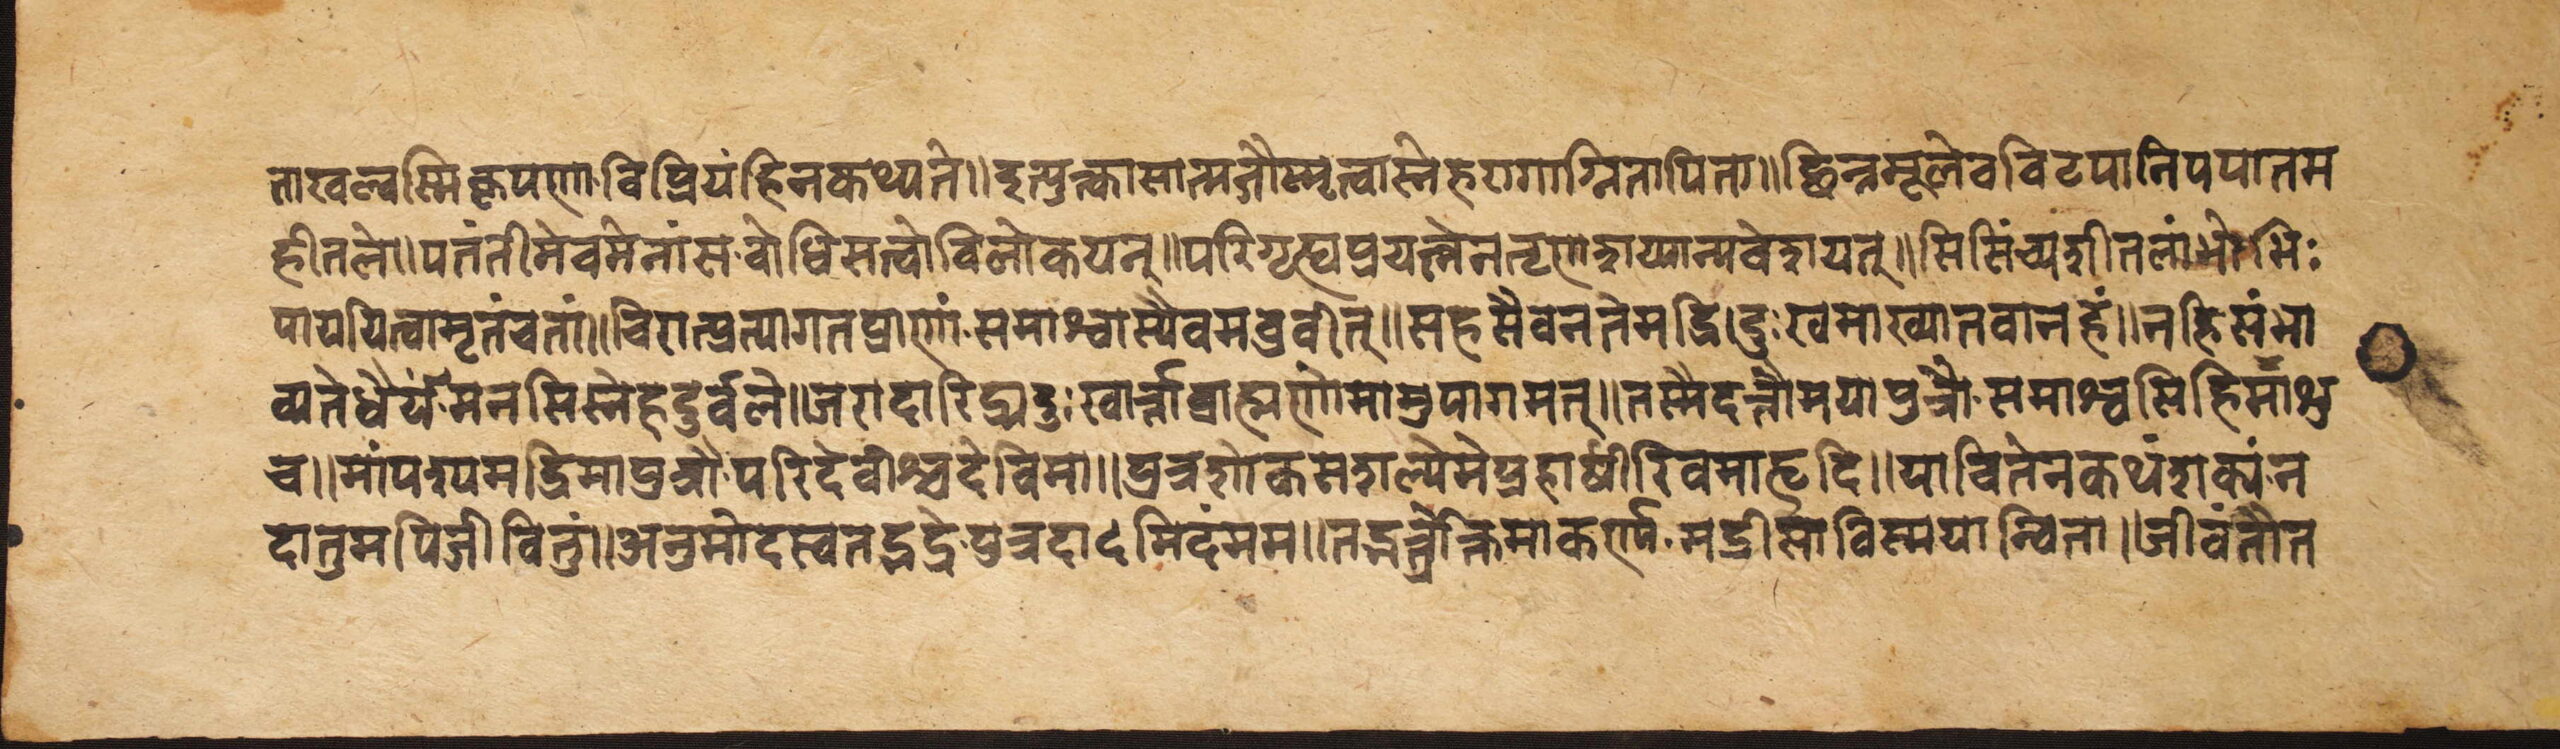 ताखल्वस्मिकृपणाविप्रियंहिनकथ्यते॥इत्युक्त्वासात्मजौस्मृत्वास्नेहरागाग्नितापिता॥छिन्नमूलेवविटपानिपपातम
हीतले॥पतंतीमेवमेनांसबोधिसत्वोविलोकयन्॥परिगृह्यप्रयत्नेनतृणशय्यान्यवेशयत्॥सिसिंच्यशीतलांभोभिः
पाययित्वामृतंचतां॥चिरात्प्रत्यागतप्राणांसमाश्वास्यैवमब्रवीत्॥सहसैवनतेमद्रिदुःखमाख्यातवानहं॥नहिसंभा
व्यतेधैर्यंमनसिस्नेहदुर्बले॥जरादारिद्र्यदुःखार्त्तोब्राह्मणोमामुपागमत्॥तस्मैदत्तौमयापुत्रौसमाश्वसिहिमाशु
च॥मांपश्यमद्रिमापुत्रौपरिदेवीश्चदेविमा॥पुत्रशोकसशल्येमेप्रहार्षीरिवमाहृदि॥याचितेनकथंशक्यंन
दातुमपिजीवितुं॥अनुमोदस्वतद्भद्रेपुत्रदानमिदंमम॥तद्भर्त्रोक्तमाकर्ण्यमद्रीसाविस्मयान्विता॥जीवंतौत